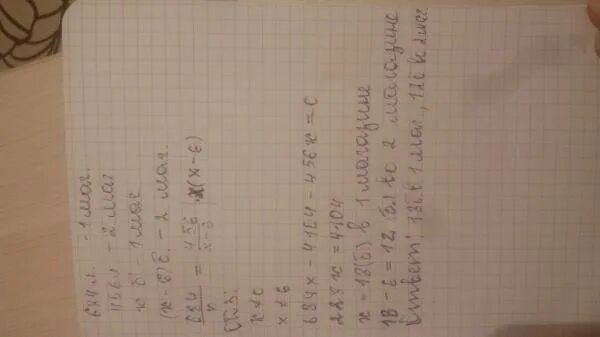 684 л. - 1 маг.
456 л - 2 маг
x б - 1 маг
(x-6) б. - 2 маг.
684/x = 456/x-6 | · x(x-6)
О.Д.З:
x≠0
x≠6
684x - 4104 - 456x = 0
228x = 4104
x = 18(б) в 1 магазине
18 - 6 = 12 б. во 2 магазине
Ответ: 18б в 1 маг., 12б в 2 маг.